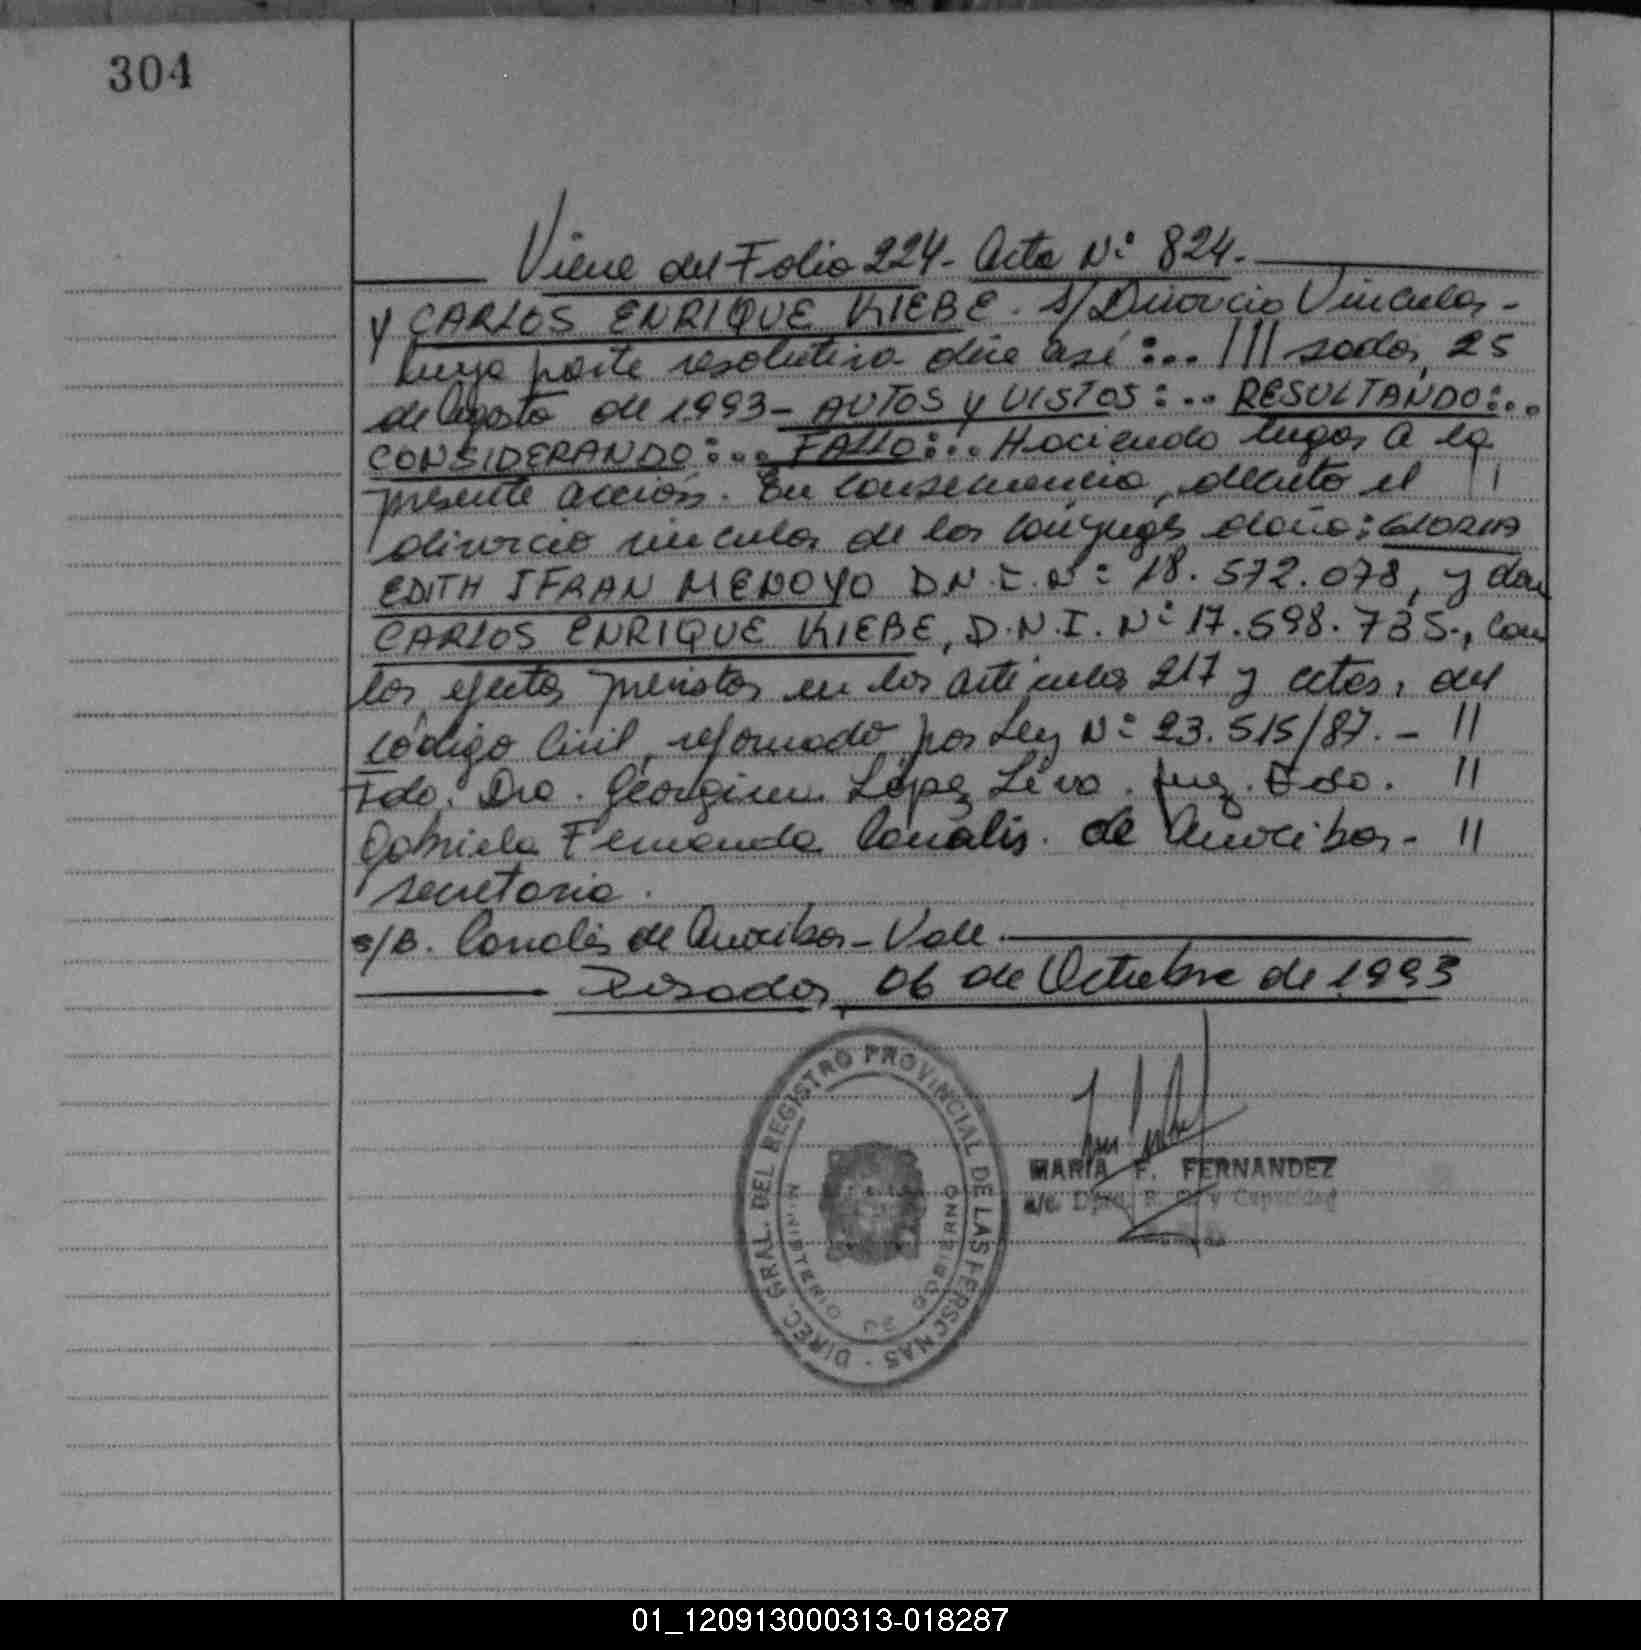 304
Viene del Folio 224 - Acta Nº 824.-
y CARLOS ENRIQUE KIEBE. s/Divorcio Vincular -
cuya parte resolutiva dice así:... ///sadas, 25
de Agosto de 1993 - AUTOS y VISTOS:... RESULTANDO:...
CONSIDERANDO:... FALLO:... Haciendo lugar a la
presente acción. En consecuencia, decreto el //
divorcio vincular de los cónyuges doña: GLORIA
EDITH IFRAN MENOYO D.N.I. Nº 18.572.078, y don
CARLOS ENRIQUE KIEBE, D.N.I. Nº 17.598.735., con
los efectos previstos en los artículos 217 y cctes, del
código Civil, reformado por Ley Nº 23.515/87.- //
Fdo. Dra. Georgina López Liva. Juez. Fdo. //
Gabriela Fernanda Canalis. de Amoribar - //
secretaria.
s/B. Canalis de Amoribar - Vale.
Posadas, 06 de Octubre de 1993
DIREC. GRAL. DEL REGISTRO PROVINCIAL DE LAS PERSONAS
MINISTERIO DE GOBIERNO
MARIA F. FERNANDEZ
a/c. Dpto. R. C. y Capacidad
01_120913000313-018287